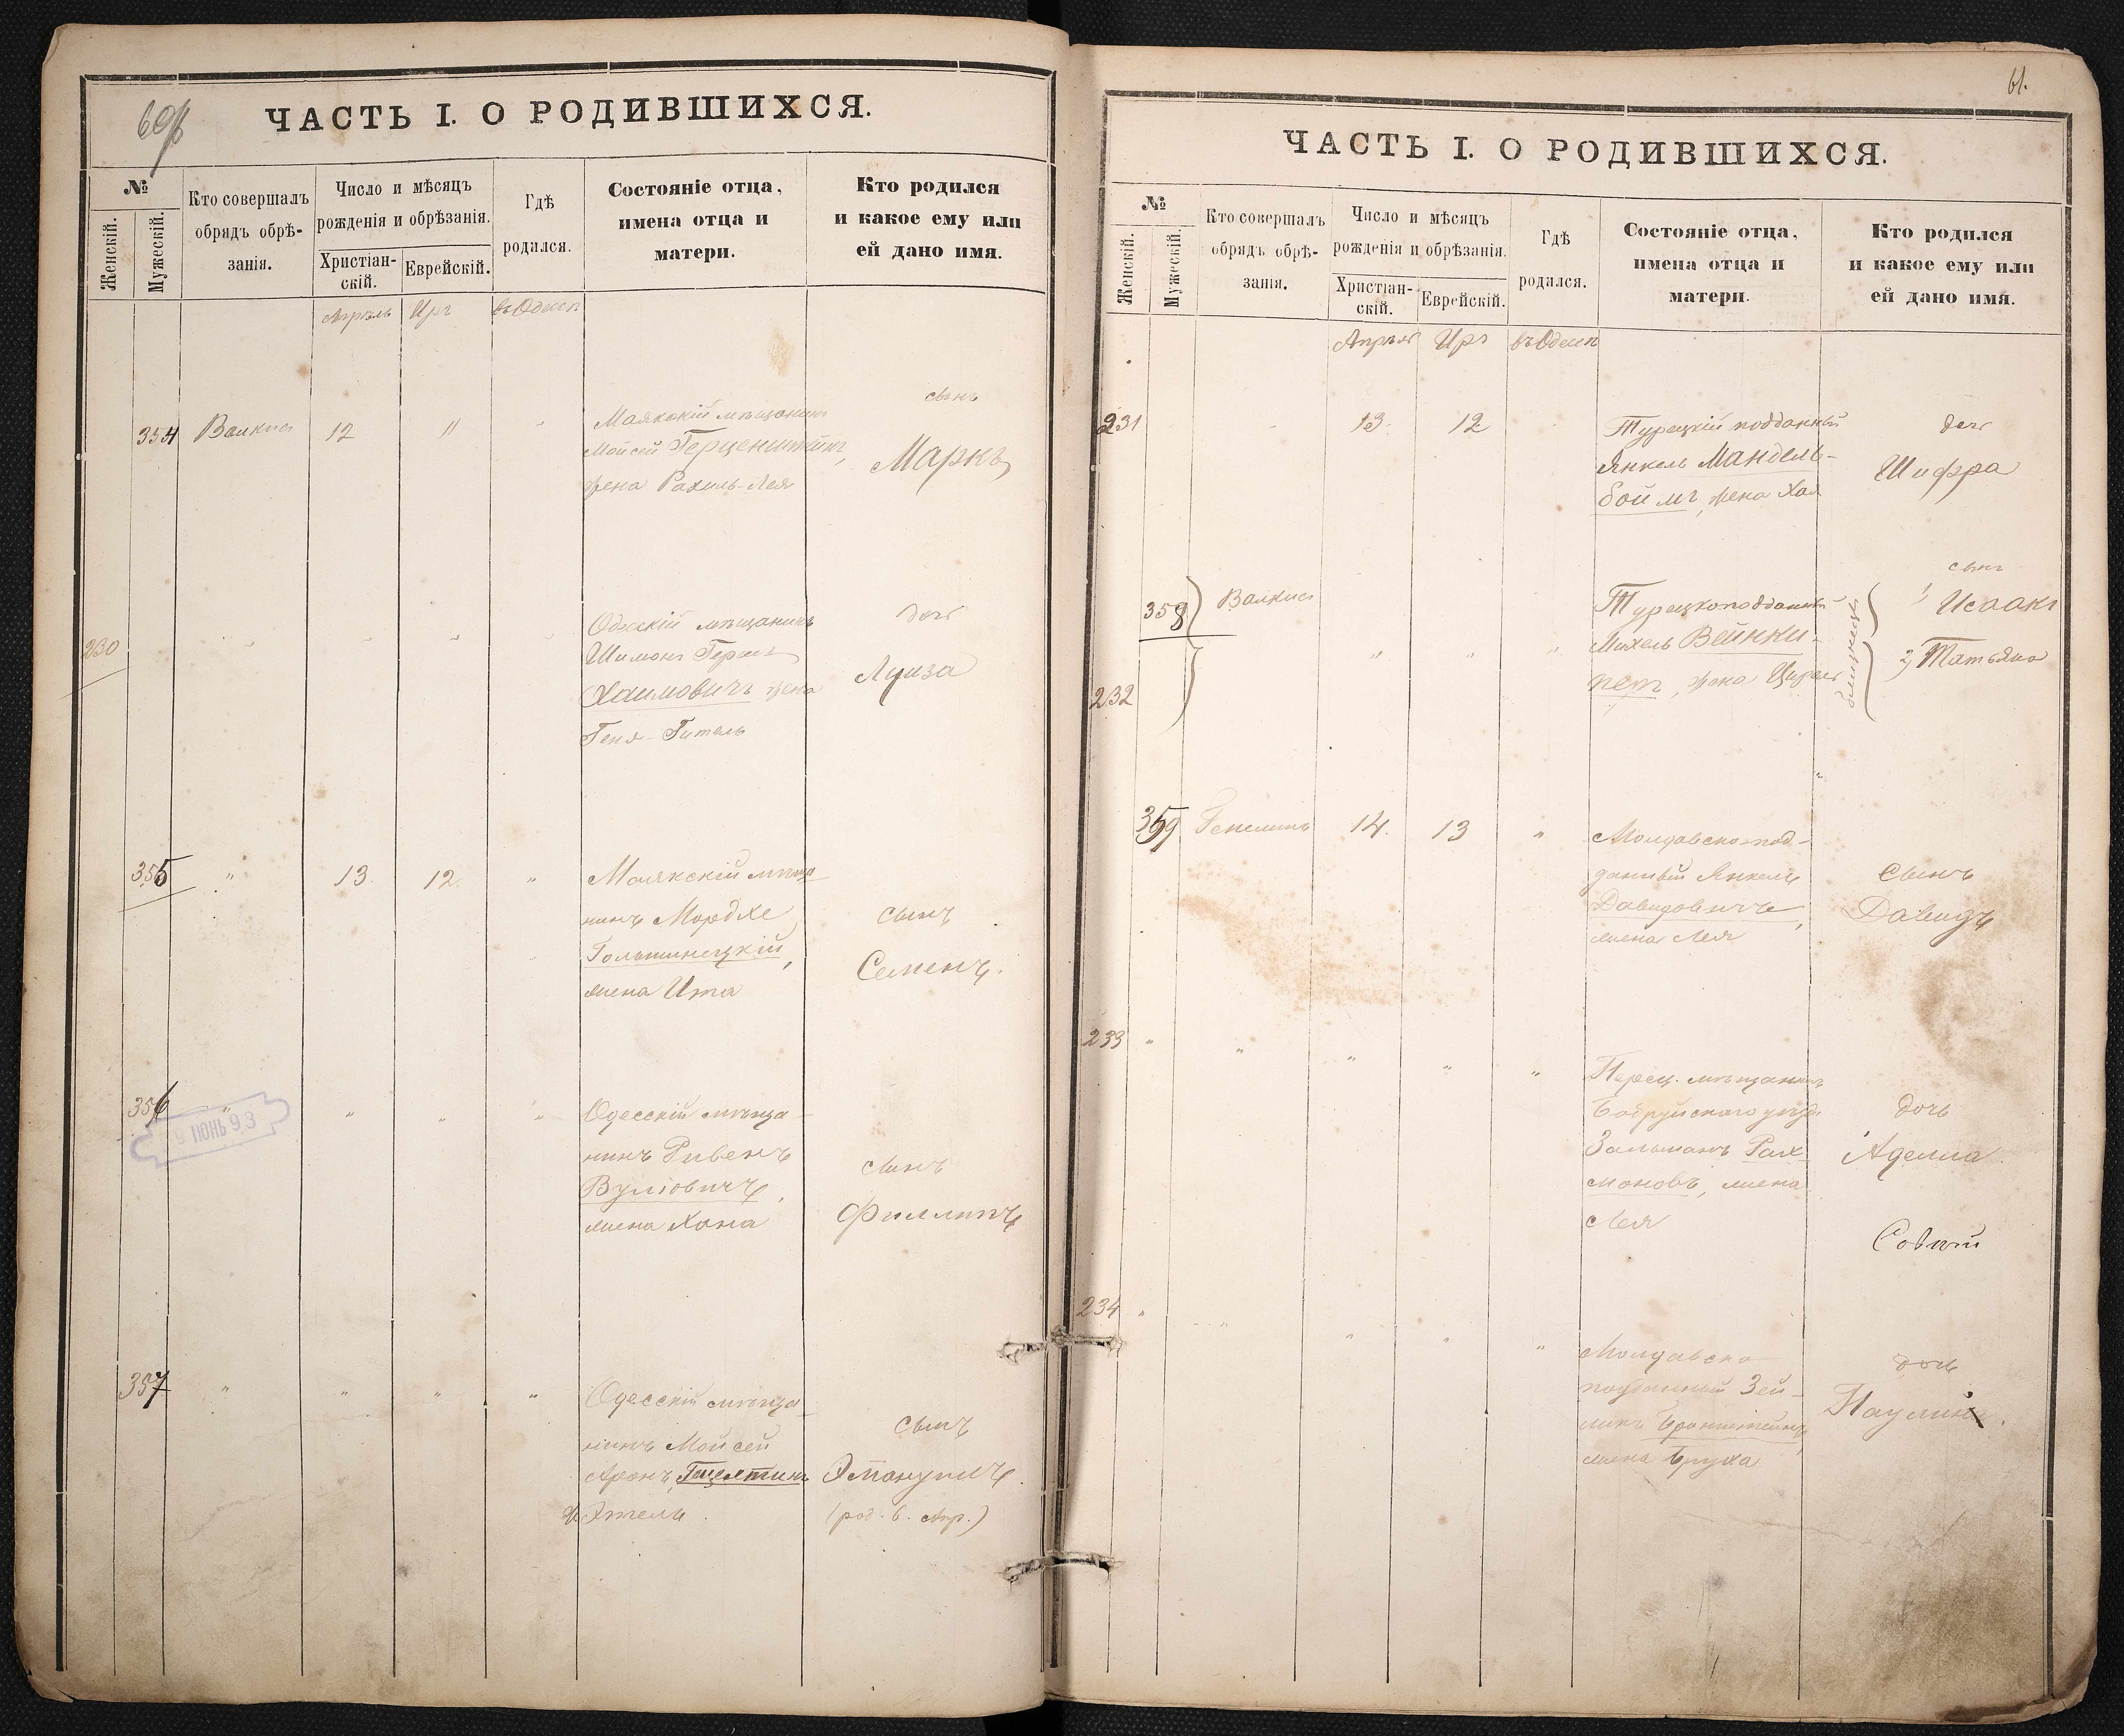 60/б
ЧАСТЬ I. О РОДИВШИХСЯ.
№
Женскій.
Мужескій.
Кто совершалъ
обрядъ обрѣ-
занія.
Число и мѣсяцъ
рожденія и обрѣзанія.
Христіан-
скій.
Еврейскій.
Гдѣ
родился.
Состояніе отца,
имена отца и
матери.
Кто родился
и какое ему или
ей дано имя.
Апрѣль Иръ въ Одессѣ
354 Валкисъ 12 11 "
Маякскій мѣщанинъ
Мойсей Герценштейнъ,
жена Рахиль-Лея
сынъ
Маркъ
230
Одесскій мѣщанинъ
Шимонъ Гершъ
Хаимовичъ жена
Геня-Гитель
дочь
Луиза
355 " 13. 12. "
Маякскій мѣща
нинъ Мордхе
Гольшинецкій,
жена Ита
сынъ
Семенъ.
356 " " " "
9 ІЮНЬ 93
Одесскій мѣща-
нинъ Рувенъ
Вулковичъ,
жена Хана
сынъ
Филиппъ
357 " " " "
Одесскій мѣща-
нинъ Мойсей
Аронъ,
ж. Этель.
сынъ
Эмануилъ.
(род. 6. Апр.)
61.
ЧАСТЬ I. О РОДИВШИХСЯ.
№
Женскій.
Мужескій.
Кто совершалъ
обрядъ обрѣ-
занія.
Число и мѣсяцъ
рожденія и обрѣзанія.
Христіан-
скій.
Еврейскій.
Гдѣ
родился.
Состояніе отца,
имена отца и
матери.
Кто родился
и какое ему или
ей дано имя.
Апрѣль Иръ въ Одессѣ
231 13. 12
Турецкій подданный
Янкель Мандель-
боймъ, жена Хая
дочь
Шифра
358 Валкисъ
232 " " "
Турецкоподданный
Михель Вейнки-
перъ, жена Цирль
близнецы
сынъ
1) Исаакъ
2) Татьяна
359 14. 13 "
Молдавскопод-
данный Янкель
Давидовичъ,
жена Лея
сынъ
Давидъ
233 " " " " "
Перец. мѣщанинъ
Бобруйскаго уѣзда
Зальманъ Рах
мановъ, жена
Лея
дочь
Аделла.
234 " " " " "
Молдавско
подданный Зей-
ликъ Бронштейнъ,
жена Бруха
дочь
Паулина.